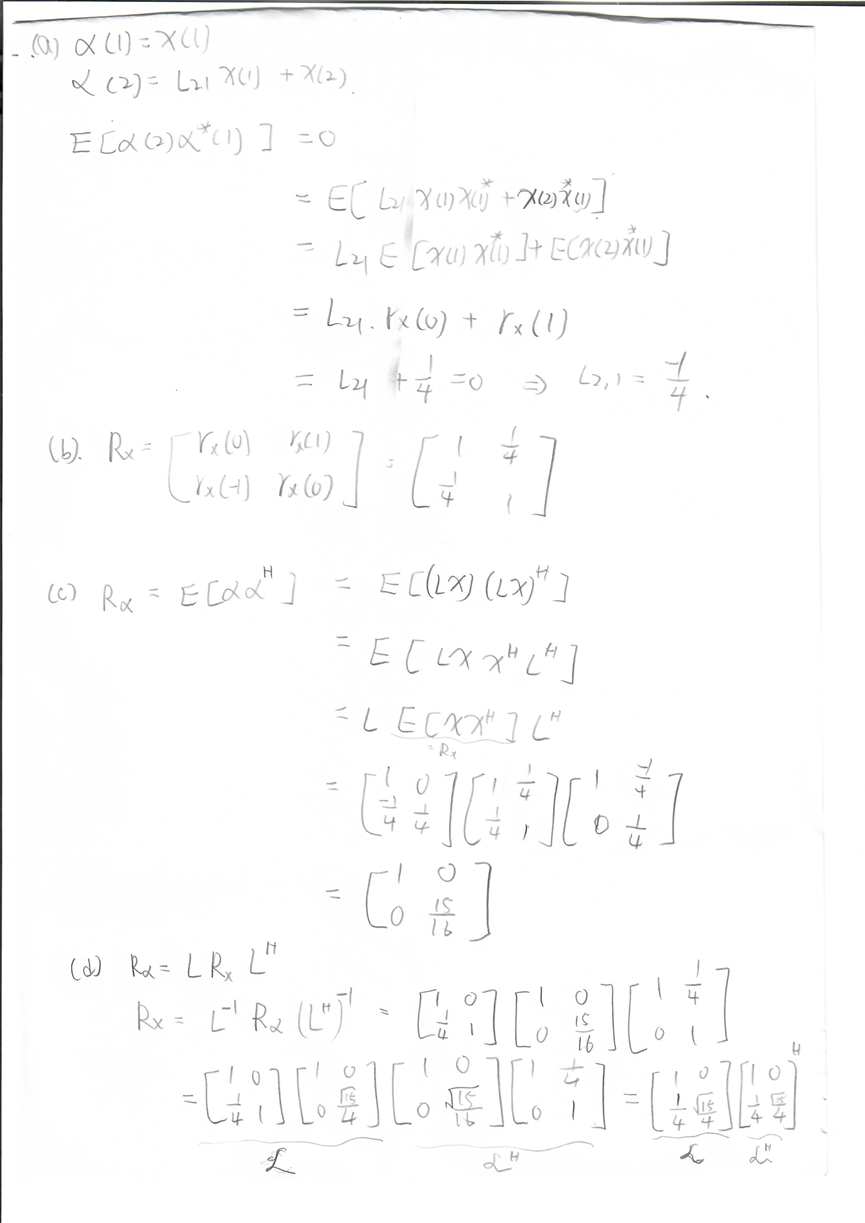 (a) α(1) = x(1)
α(2) = L21 x(1) + x(2).
E[α(2)α*(1)] = 0
= E[L21 x(1)x(1)* + x(2)x*(1)]
= L21 E[x(1)x*(1)] + E[x(2)x*(1)]
= L21 · rx(0) + rx(1)
= L21 + 1/4 = 0 ⇒ L2,1 = -1/4.
(b). Rx = [rx(0) rx(1); rx(-1) rx(0)] = [1 1/4; 1/4 1]
(c) Rα = E[αα^H] = E[(Lx)(Lx)^H]
= E[Lx x^H L^H]
= L E[xx^H] L^H
= Rx
= [1 0; -1/4 1/4][1 1/4; 1/4 1][1 -1/4; 0 1/4]
= [1 0; 0 15/16]
(d) Rα = L Rx L^H
Rx = L^-1 Rα (L^H)^-1 = [1 0; 1/4 1][1 0; 0 15/16][1 1/4; 0 1]
= [1 0; 1/4 1][1 0; 0 √15/4][1 0; 0 √15/16][1 1/4; 0 1] = [1 0; 1/4 √15/4][1 0; 1/4 √15/4]^H
L L^H L L^H